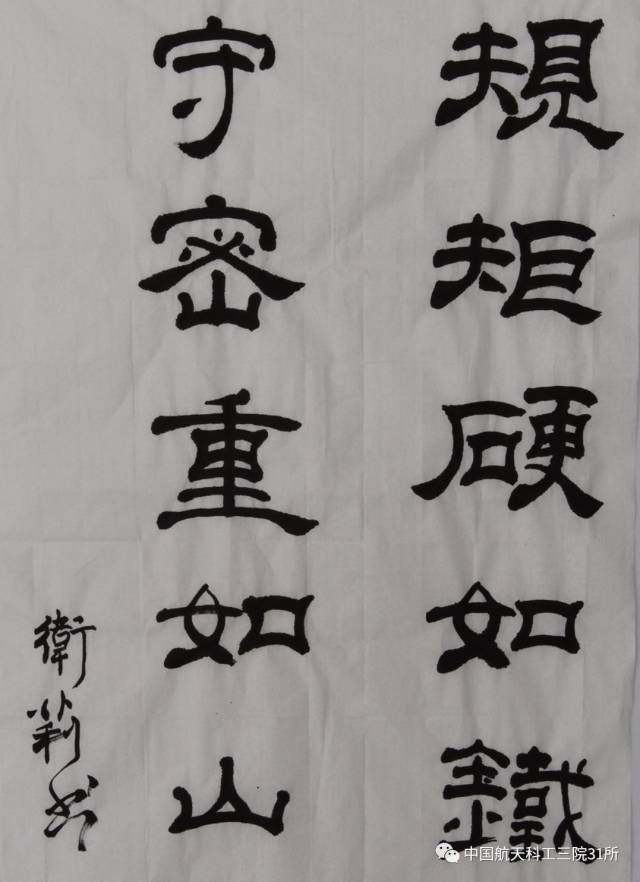 規矩硬如鐵
守密重如山
衛莉书
中国航天科工三院31所